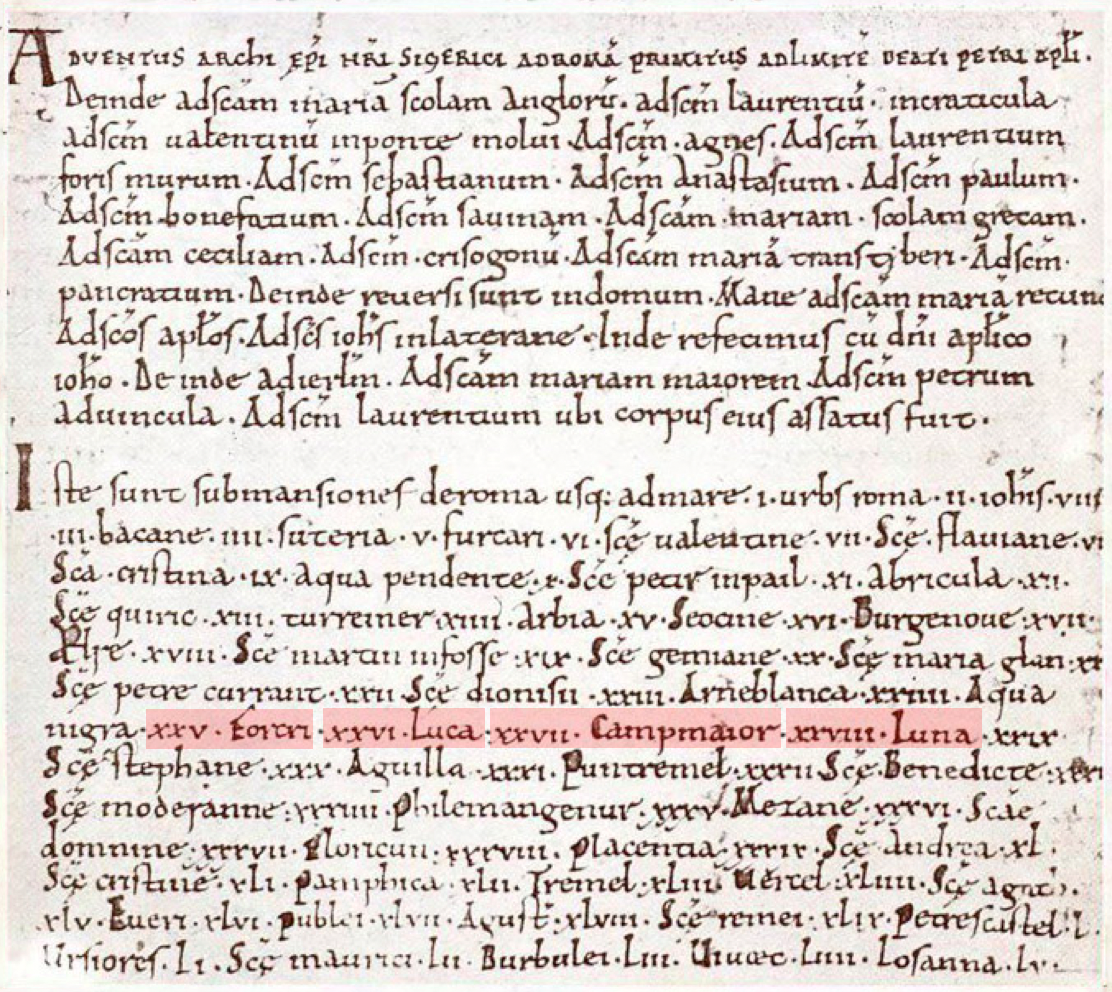 ADVENTUS ARCHI EP̄I NR̄I SIGERICI ADROMĀ PRIMITUS ADLIMITĒ BEATI PETRI APL̄I.
Deinde adscām mariā scolam anglorū. adscm̄ laurentiū. incraticula
adscm̄ ualentinū inponte molui. Adscm̄. agnes. Adscm̄ laurentium
foris murum. Adscm̄ sebastianum. Adscm̄ Anastasium. Adscm̄ paulum.
Adscm̄. bonefatium. Adscm̄ sauinam. Adscām. mariam. scolam grecam.
Adscām ceciliam. Adscm̄. crisogonū. Adscām mariā transtyberi. Adscm̄.
pancratium. Deinde reuersi sunt indomum. Mane adscām mariā rotund
Adscōs apl̄os. Adscī ioh̄s inlaterane. Inde refecimus cū dn̄i apl̄ico
ioh̄o. Deinde adierl̄m. Adscām mariam maiorem. Adscm̄ petrum
aduincula. Adscm̄ laurentium ubi corpus eius assatus fuit.
Iste sunt submansiones deroma usq: admare. i. urbs roma. ii. ioh̄is. uiiii
.iii. bacane. iiii. suteria. v. furcari. vi. scē ualentine. vii. Scē. flauiane. vi
Scā. cristina. ix. aqua pendente. x. Scē petir inpail. xi. abricula. xii.
Scē quiric. xiii. turreiner. xiiii. Arbia. xv. Seocine. xvi. Burgenoue. xvii.
Ælse. xviii. Scē martin infosse. xix. Scē gemiane. xx. Scē maria glan. xx
Scē petre currant. xxii. Scē dionisii. xxiii. Arneblanca. xxiiii. Aqua
nigra. xxv. Forcri. xxvi. Luca. xxvii. Campmaior. xxviii. Luna. xxix.
Scē stephane. xxx. Aguilla. xxxi. Puntremel. xxxii. Scē. Benedicte. xxxi
Scē moderanne. xxxiiii. Philemangenur. xxxv. Metane. xxxvi. Scāe
domnine. xxxvii. Floricun. xxxviii. Placentia. xxxix. Scē Andrea. xl.
Scē cristine. xli. Pamphica. xlii. Tremel. xliii. Uercel. xliiii. Scē agath.
.xlv. Eueri. xlvi. publei. xlvii. Agust. xlviii. Scē remei. xlix. Petrescastel. l.
Ursiores. Li. Scē maurici. Lii. Burbulei. Liii. Uiuaec. Liiii. Losanna. Lv.